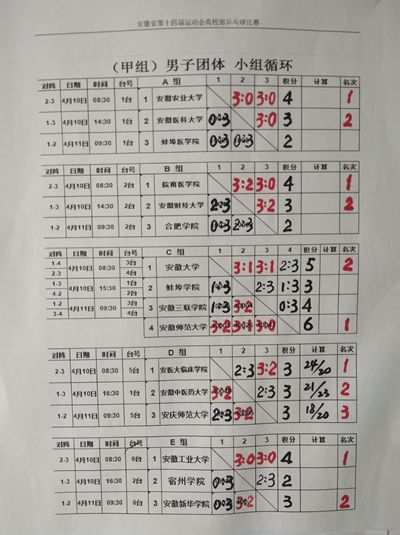 安徽省第十四届运动会高校部乒乓球比赛
（甲组）男子团体 小组循环
对阵 日期 时间 台号 A 组 1 2 3 积分 计算 名次
2-3 4月10日 08:30 1台 1 安徽农业大学 3:0 3:0 4 1
1-3 4月10日 14:30 1台 2 安徽医科大学 0:3 3:0 3 2
1-2 4月11日 09:30 1台 3 蚌埠医学院 0:3 0:3 2
对阵 日期 时间 台号 B 组 1 2 3 积分 计算 名次
2-3 4月10日 08:30 2台 1 皖南医学院 3:2 3:0 4 1
1-3 4月10日 14:30 2台 2 安徽财经大学 2:3 3:2 3 2
1-2 4月11日 09:30 2台 3 合肥学院 0:3 2:3 2
对阵 日期 时间 台号 C 组 1 2 3 4 积分 计算 名次
1-4 4月10日 08:30 3台 1 安徽大学 3:1 3:1 2:3 5 2
2-3 4台
1-3 4月10日 15:30 1台 2 蚌埠学院 1:3 2:3 1:3 3
4-2 2台
1-2 4月11日 09:30 3台 3 安徽三联学院 1:3 3:2 0:3 4
3-4 4台
4 安徽师范大学 3:2 3:1 3:0 6 1
对阵 日期 时间 台号 D 组 1 2 3 积分 计算 名次
2-3 4月10日 08:30 5台 1 安医大临床学院 2:3 3:2 3 24/20 1
1-3 4月10日 16:30 1台 2 安徽中医药大学 3:2 2:3 3 21/23 2
1-2 4月11日 09:30 5台 3 安庆师范大学 2:3 3:2 3 18/20 3
对阵 日期 时间 台号 E 组 1 2 3 积分 计算 名次
2-3 4月10日 08:30 6台 1 安徽工业大学 3:0 3:0 4 1
1-3 4月10日 16:30 2台 2 宿州学院 0:3 2:3 2
1-2 4月11日 09:30 6台 3 安徽新华学院 0:3 3:2 3 2